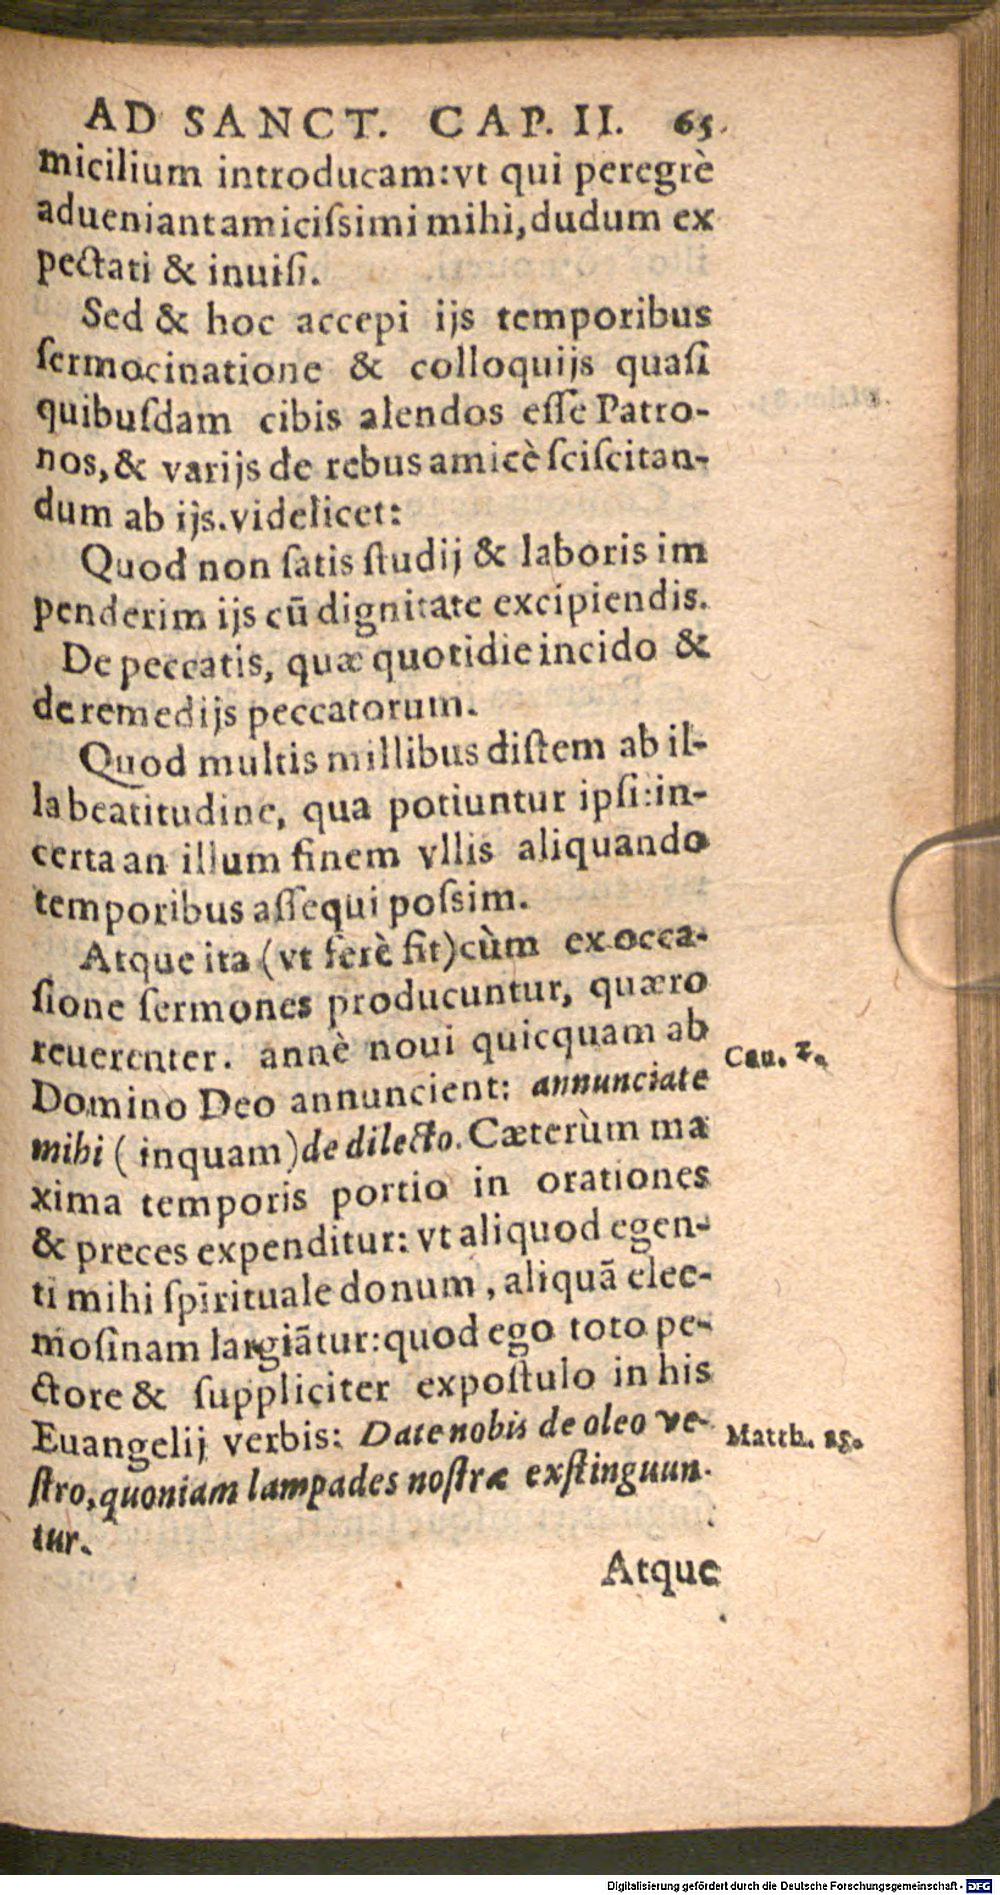 AD SANCT. CAP. II. 65.
micilium introducam:vt qui peregrè
adueniant amiciſsimi mihi, dudum ex
pectati & inuiſi.
Sed & hoc accepi ijs temporibus
ſermocinatione & colloquijs quaſi
quibuſdam cibis alendos eſſe Patro-
nos, & varijs de rebus amicè ſciſcitan-
dum ab ijs. videlicet:
Quod non ſatis ſtudij & laboris im
penderim ijs cū dignitate excipiendis.
De peccatis, quæ quotidie incido &
de remedijs peccatorum.
Quod multis millibus diſtem ab il-
la beatitudine, qua potiuntur ipſi:in-
certa an illum finem vllis aliquando
temporibus aſſequi poſsim.
Atque ita (vt ferè fit) cùm ex occa-
ſione ſermones producuntur, quæro
reuerenter. annè noui quicquam ab
Domino Deo annuncient: annunciate
Can. 2.
mihi (inquam) de dilecto. Cæterùm ma
xima temporis portio in orationes
& preces expenditur: vt aliquod egen-
ti mihi ſpirituale donum, aliquā elee-
moſinam largiātur: quod ego toto pe-
ctore & ſuppliciter expoſtulo in his
Euangelij verbis: Date nobis de oleo ve-
Matth. 25.
ſtro, quoniam lampades noſtræ exſtinguun-
tur.
Atque
Digitalisierung gefördert durch die Deutsche Forschungsgemeinschaft - DFG